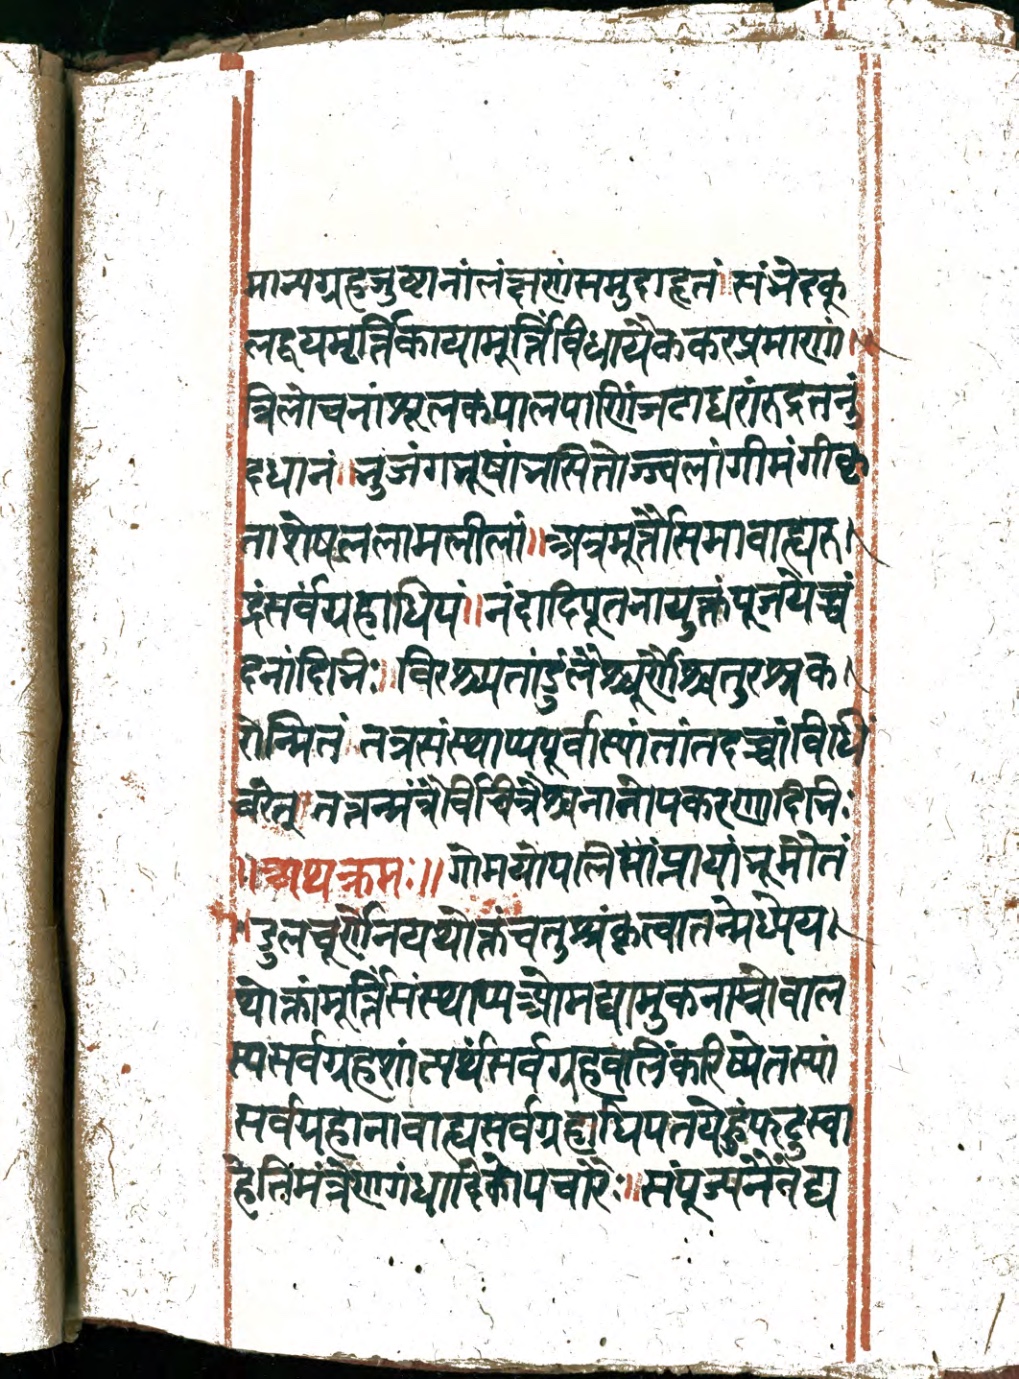 मान्यग्रहजुष्टानांलंक्षणंसमुदाहृतं॥संभेदकू
लद्वयमृर्त्तिकायामूर्त्तिंविधायैककरप्रमाणां।
त्रिलोचनांशूलकपालपाणिंजटाधरांरुद्रतनुं
दधानं॥भुजंगभूषांभसितोज्ज्वलांगीमंगीकृ
ताशेषललामलीलां॥अत्रमूर्त्तौसमावाह्यरु।
द्रंसर्वग्रहाधिपं॥नंदादिपूतनायुक्तंपूजयेच्चं
दनादिभिः॥विरश्च्यतांडुलैश्चूर्णैश्चतुरश्रक।
रोन्मितं॥तत्रसंस्थाप्यपूर्वास्यांतांतदर्च्चांविधि
वंरेत्॥तत्तन्मंत्रैर्विचित्रैश्चनानोपकरणादिभिः
॥अथक्रमः॥गोमयोपलिसांप्रायांभूमौतं
॥डुलचूर्णेनयथोक्तंचतुश्रंकृत्वातन्मध्येय।
थोक्तांमूर्त्तिंसंस्थाप्यओमद्यामुकनाम्नोवाल
स्यसर्वग्रहशांत्यर्थंसर्वग्रहवालिंकरिष्येतस्यां
सर्वग्रहानावाह्यसर्वग्रहाधिपतयेहुंफट्स्वा
हेतिमंत्रेणगंधादिकोपचारैः॥संपूज्यनैवेद्य